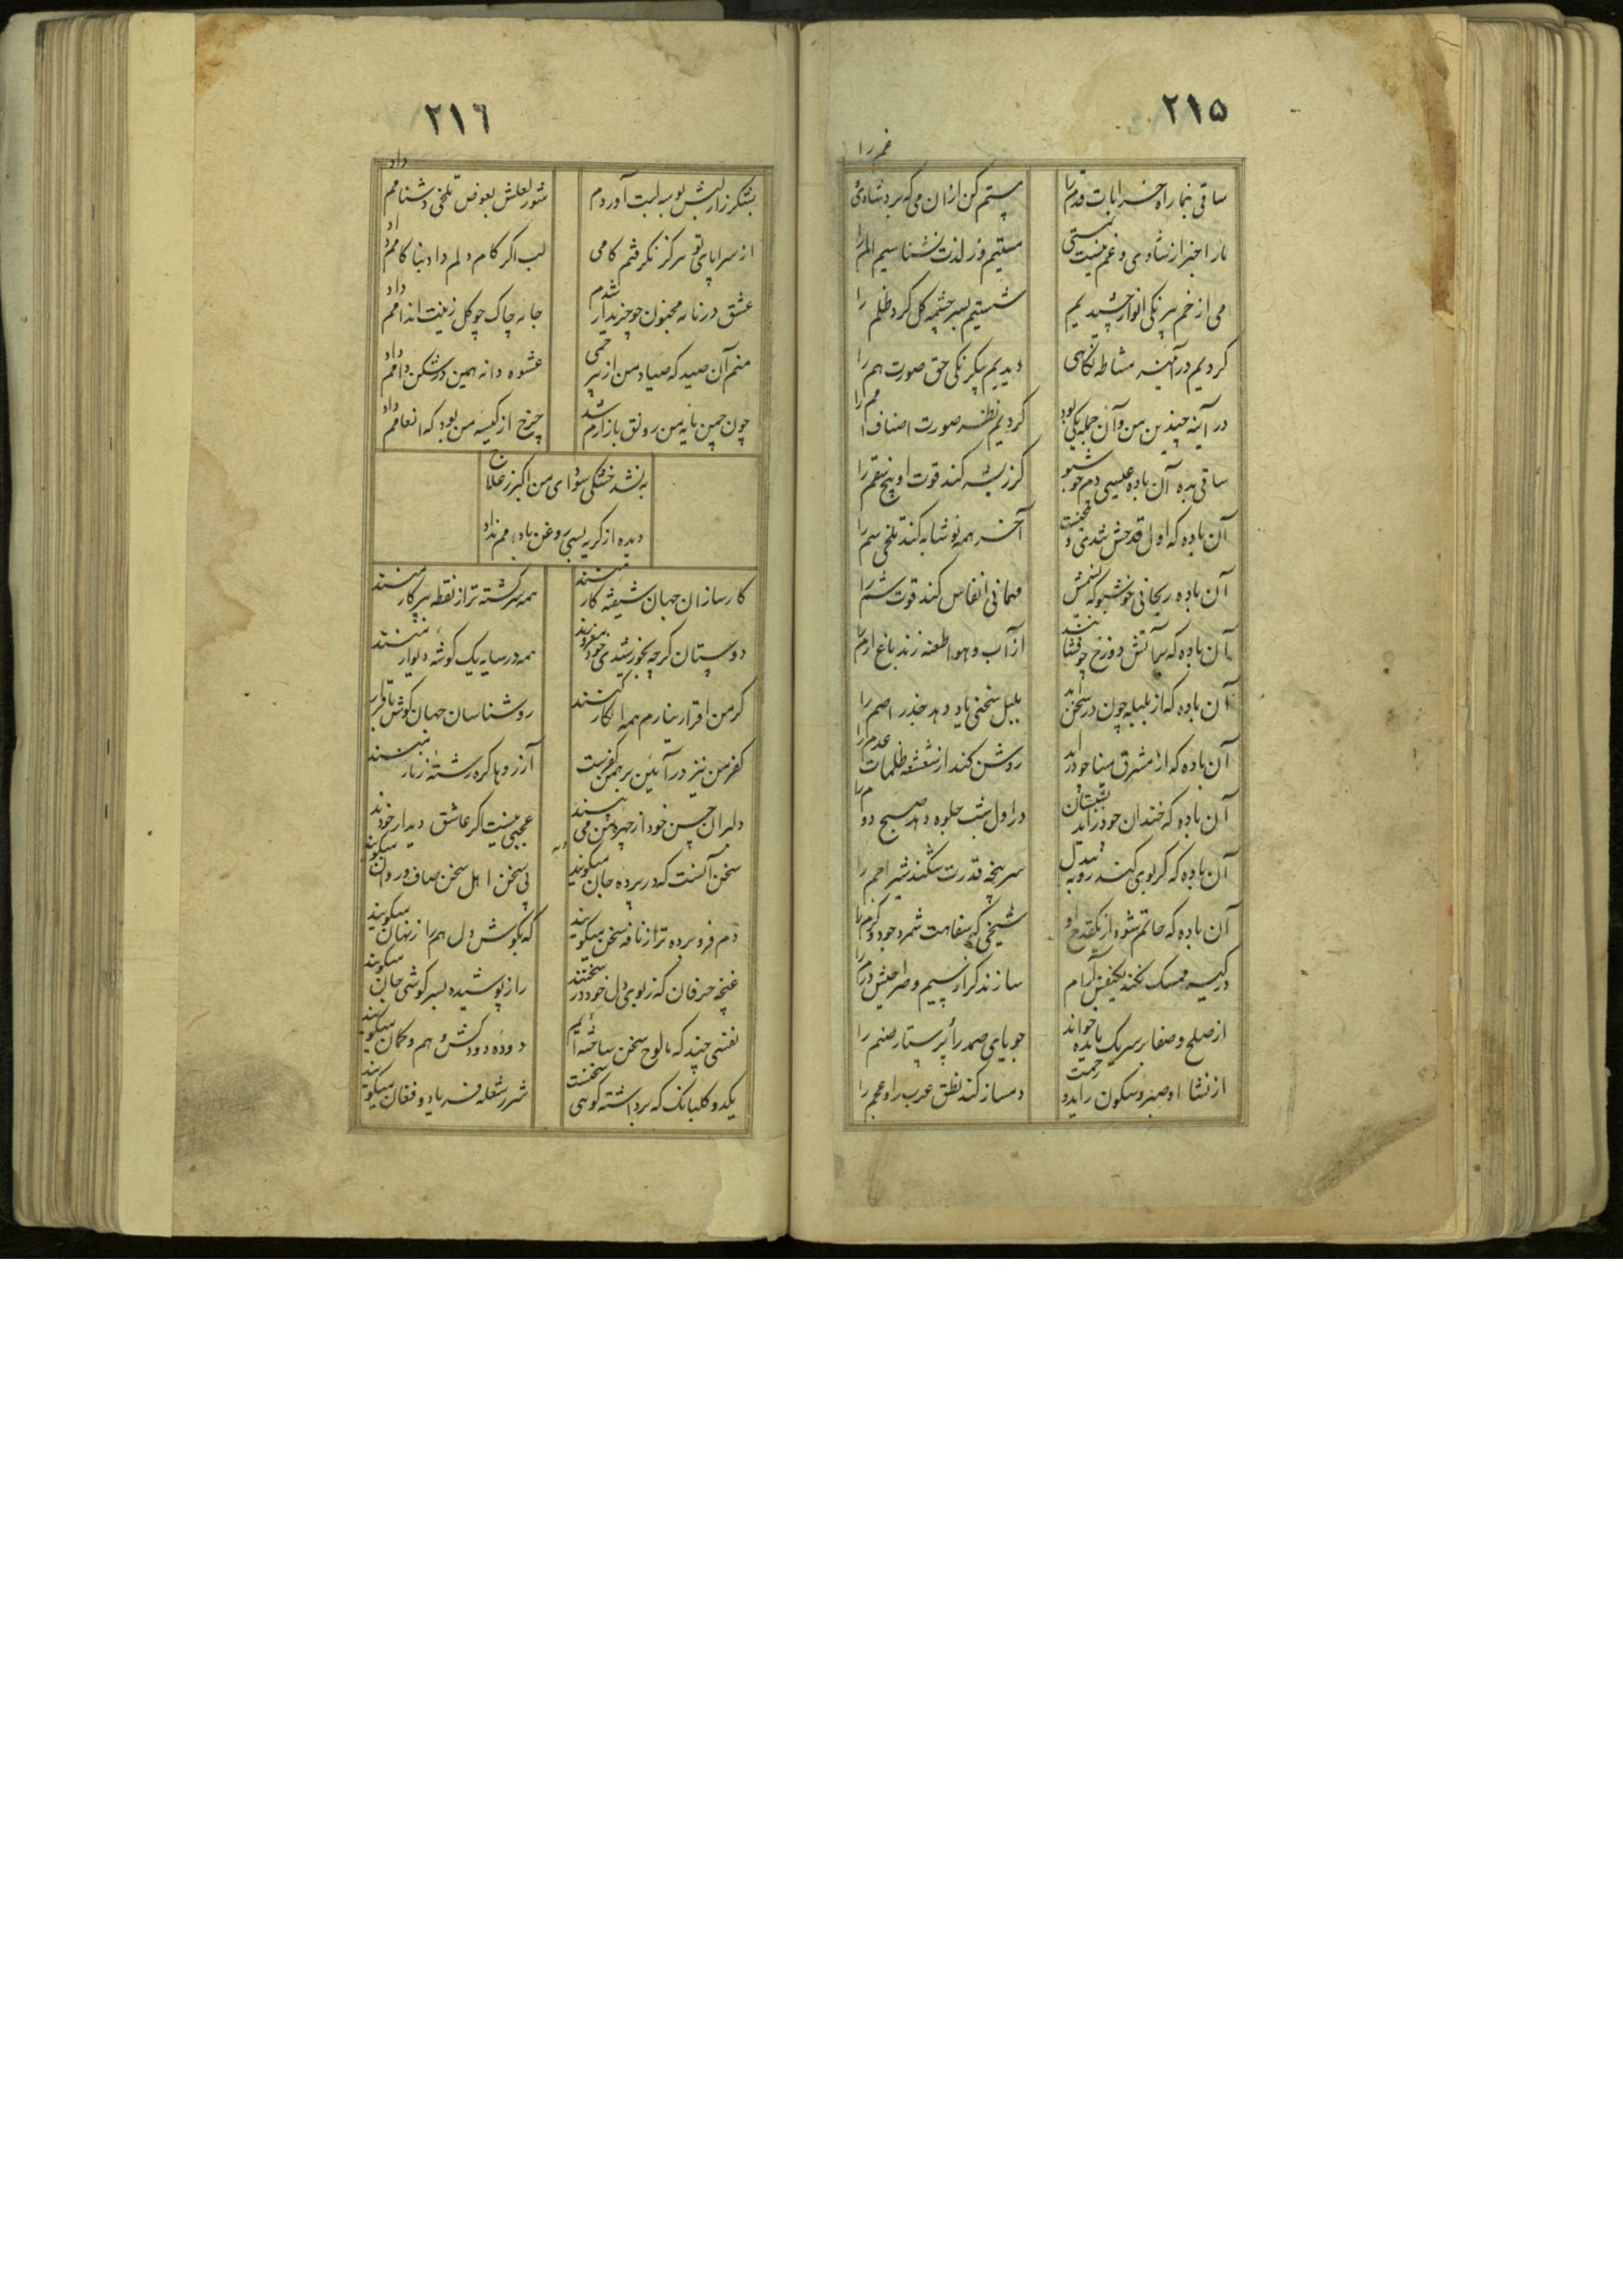 ۲۱۵
ساقی بنما راه خرابات قدم را
مستم کن ازان می که برد شادی غم را
ما را خبر از شادی و غم نیست ز مستی
مستیم وز لذت نشناسیم الم را
می از خم بیرنکی انوار چشیدیم
شستیم بسرچشمه کل کرد ظلم را
کردیم در آینه مشاطه نکاهی
دیدیم بیکرنکی حق صورت هم را
در آینه چندین من و آن جمله یکی بود
کردیم نظر صورت اصناف امم را
ساقی بده آن باده عیسی دم خوشبو
کز ریشه کند قوت او بیخ سقم را
آن باده که اول قدحش شدی و
آخر همه نوشابه کند تلخی سم را
آن باده ریحانی خوشبو که نسیمش
مهمانی انفاس کند قوت شم را
آن باده که بر آتش دوزخ چو فشانند
از آب و هوا طعنه زند باغ ارم را
آن باده که از بلبله چون در سخن آید
بلبل سخنی یاد دهد جذر اصم را
آن باده که از مشرق مینا چو در آید
روشن کند از شعشعه ظلمات عدم را
آن باده که خندان چو در آید بشبستان
در اول شب جلوه دهد صبح دوم را
آن باده که کر بوی کند روبه بیدل
سرپنجه قدرت شکند شیر اجم را
آن باده که حاتم شود از یکقدح او
شیخی که سفاهت شمرد جود و کرم را
در کیسه ممسک نکند یکنفس آرام
سازند کر از سیم و طراحیش درم را
از صلح و صفا بر سر یک مایده خواند
جویای صمد را و پرستار صنم را
از نشا او صبر و سکون زاید و رحمت
دمساز کند نطق عرب را و عجم را
۲۱۶
بشکرزار لبش بوسه لبت آوردم
شور لعلش بعوض تلخی دشنامم داد
از سراپای تو هرکز نکرفتم کامی
لب اکر کام دلم داد بناکامم داد
عشق در نامه مجنون چو خریدار شدم
جامه چاک چو کل زینت اندامم داد
منم آن صید که صیاد من از بیرحمی
عشوه دانه همین در شکن دامم داد
چون چمن مایه من رونق بازارم شد
چرخ از کیسه من بود که انعامم داد
به نشد خشکی سودای من اکبر ز علاج
دیده از کریه بسی روغن بادامم داد
کارسازان جهان شیفته کار منند
همه سرکشته تر از نقطه پرکار منند
دوستان کرچه بخورشیدی خود مغرورند
همه در سایه یک کوشه دیوار منند
کر من اقرار نیارم همه انکار کنند
روشناسان جهان کوش باقرار منند
کفر من نیز در آیین برهمن کفرست
آرزوها کره رشته زنار منند
دلبران حسن خود از چهره من می بینند
عجبی نیست اکر عاشق دیدار خودند
سخن آنست که در پرده جان میکویند
پی سخن اهل سخن صاف و روان میکویند
دم فرو برده تر از نافه سخن میکویند
که بکوش دل هم راز نهان میکویند
غنچه حرفان که ز بوی دل خود در سخنند
راز پوشیده بسرکوشی جان میکویند
نفسی چند که ما لوح سخن ساخته ایم
دوده دودکش وهم و کمان میکویند
یکدو کلبانک که برداشته کوهی سخنست
شرر شعله فریاد و فغان میکویند